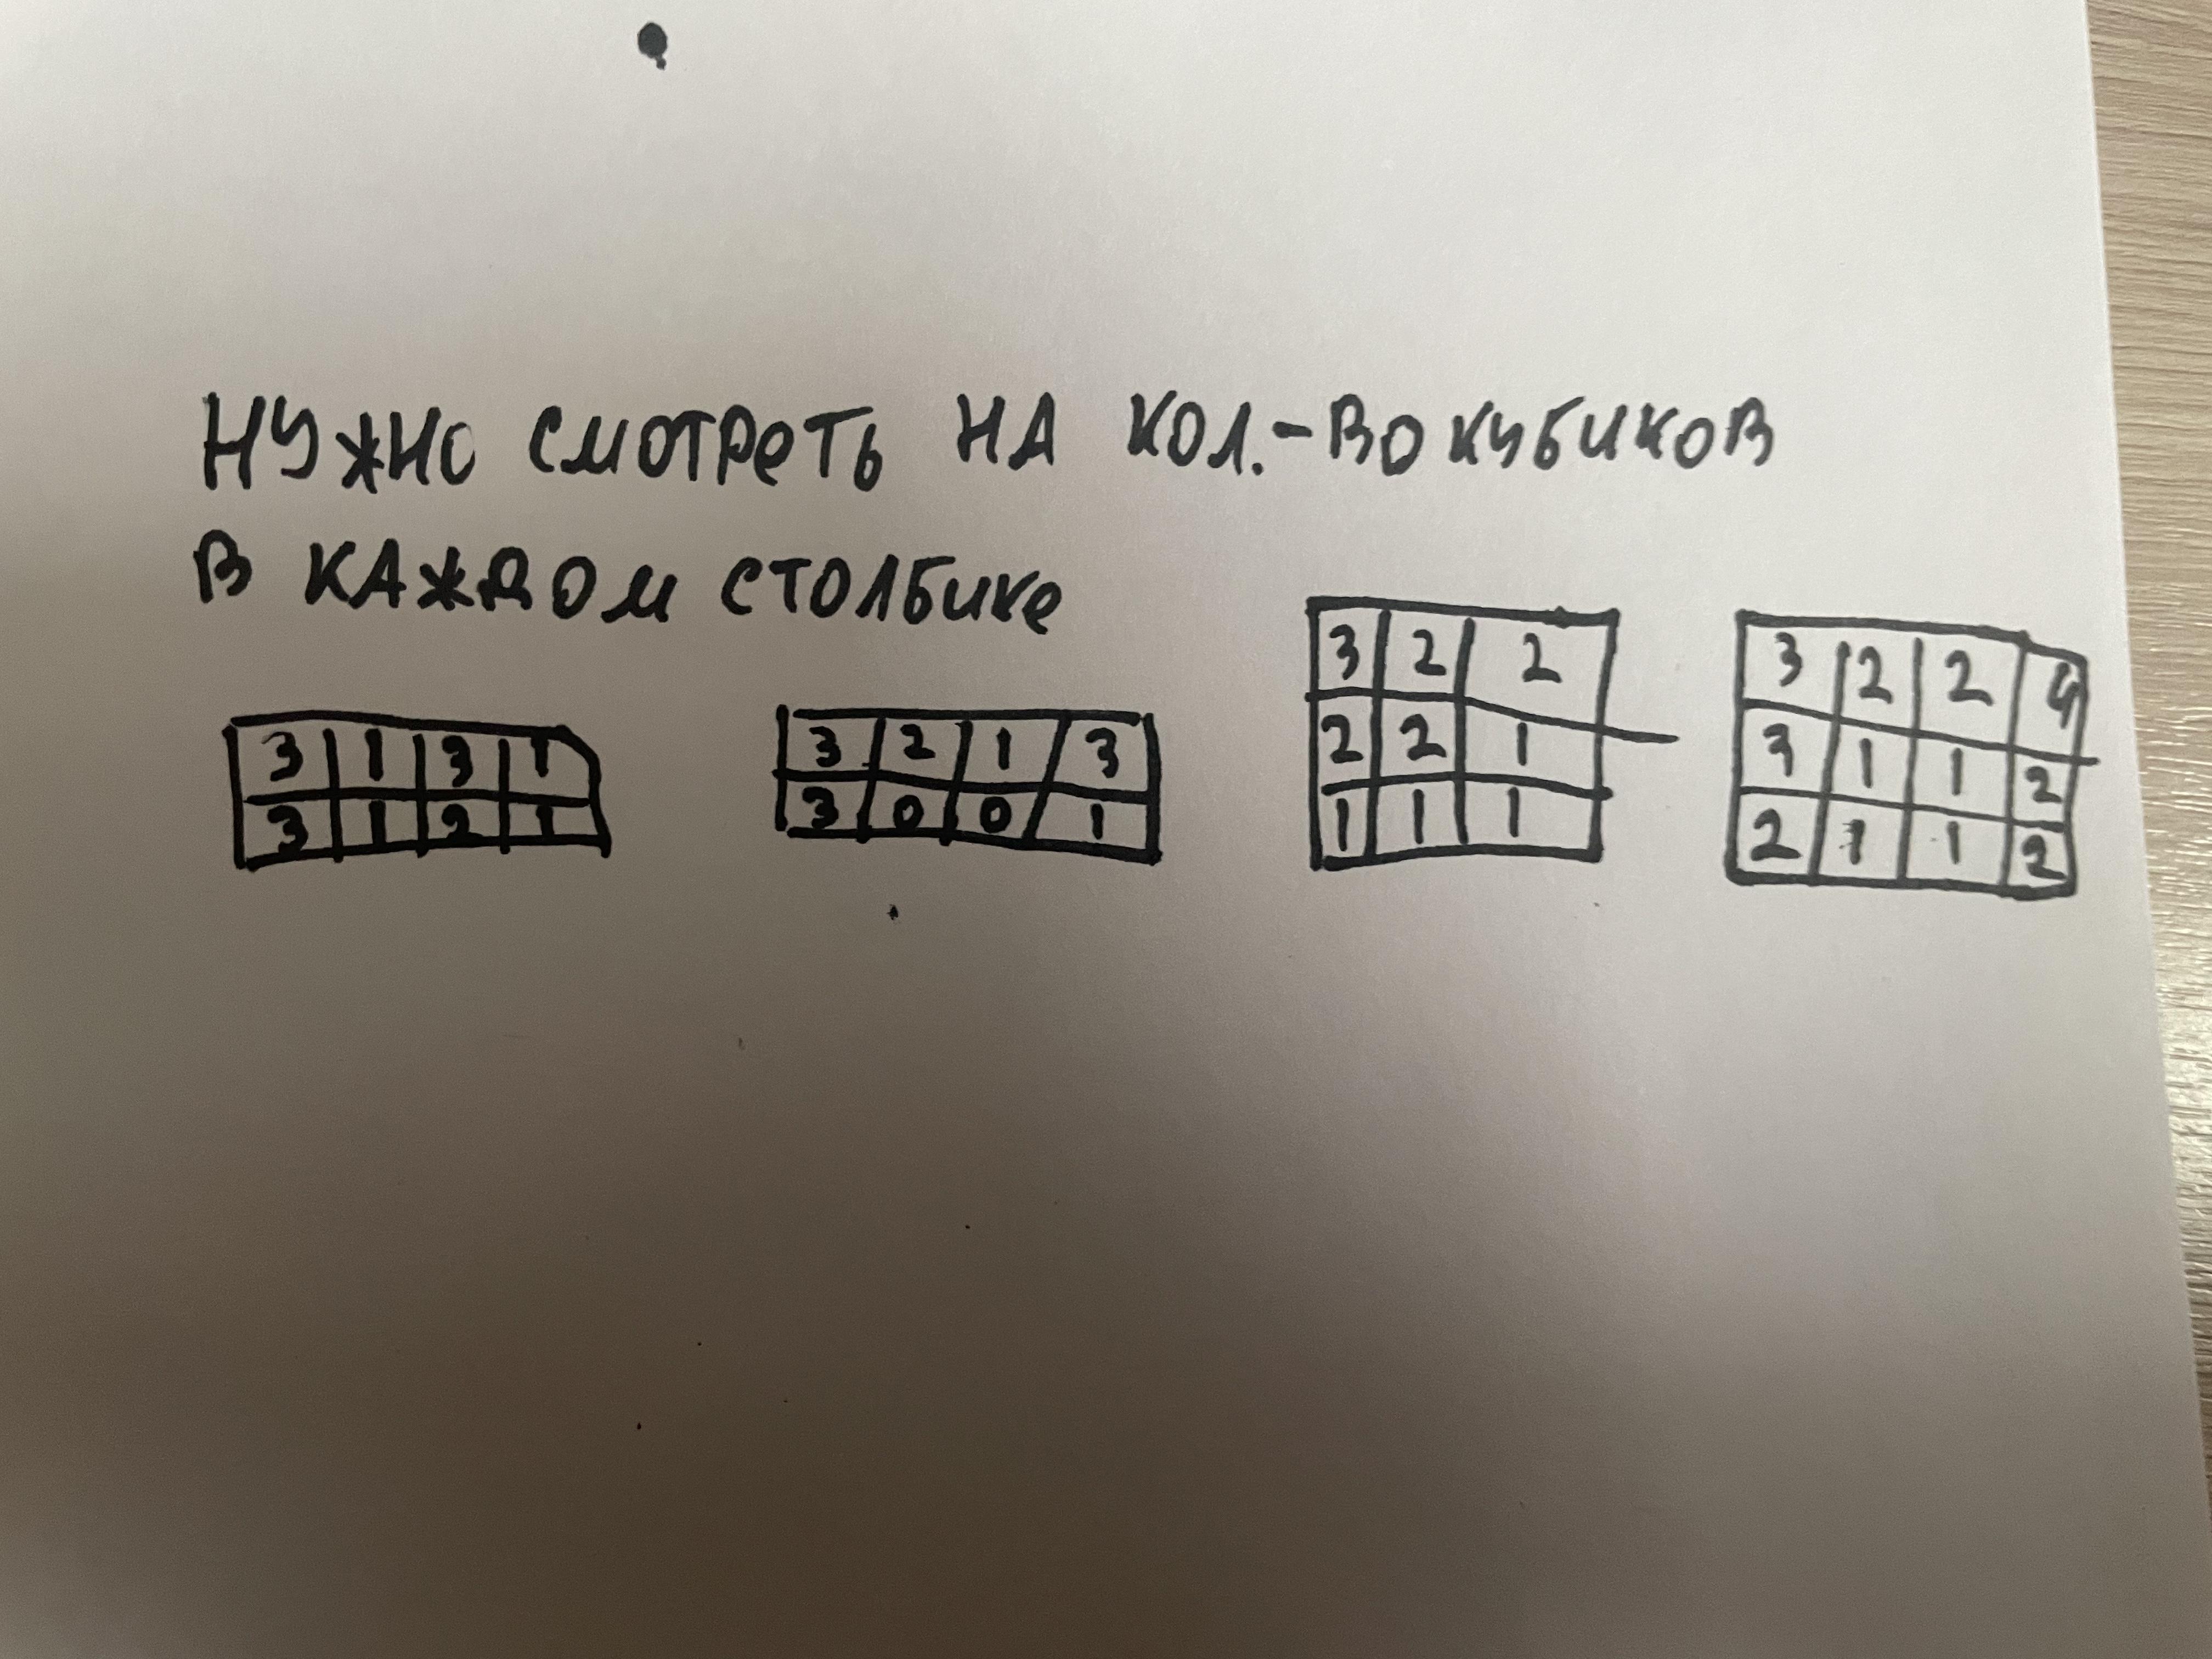 НУЖНО СМОТРЕТЬ НА КОЛ.-ВО КУБИКОВ
В КАЖДОМ СТОЛБИКЕ
3 1 3 1
3 1 2 1
3 2 1 3
3 0 0 1
3 2 2
2 2 1
1 1 1
3 2 2 4
3 1 1 2
2 1 1 2